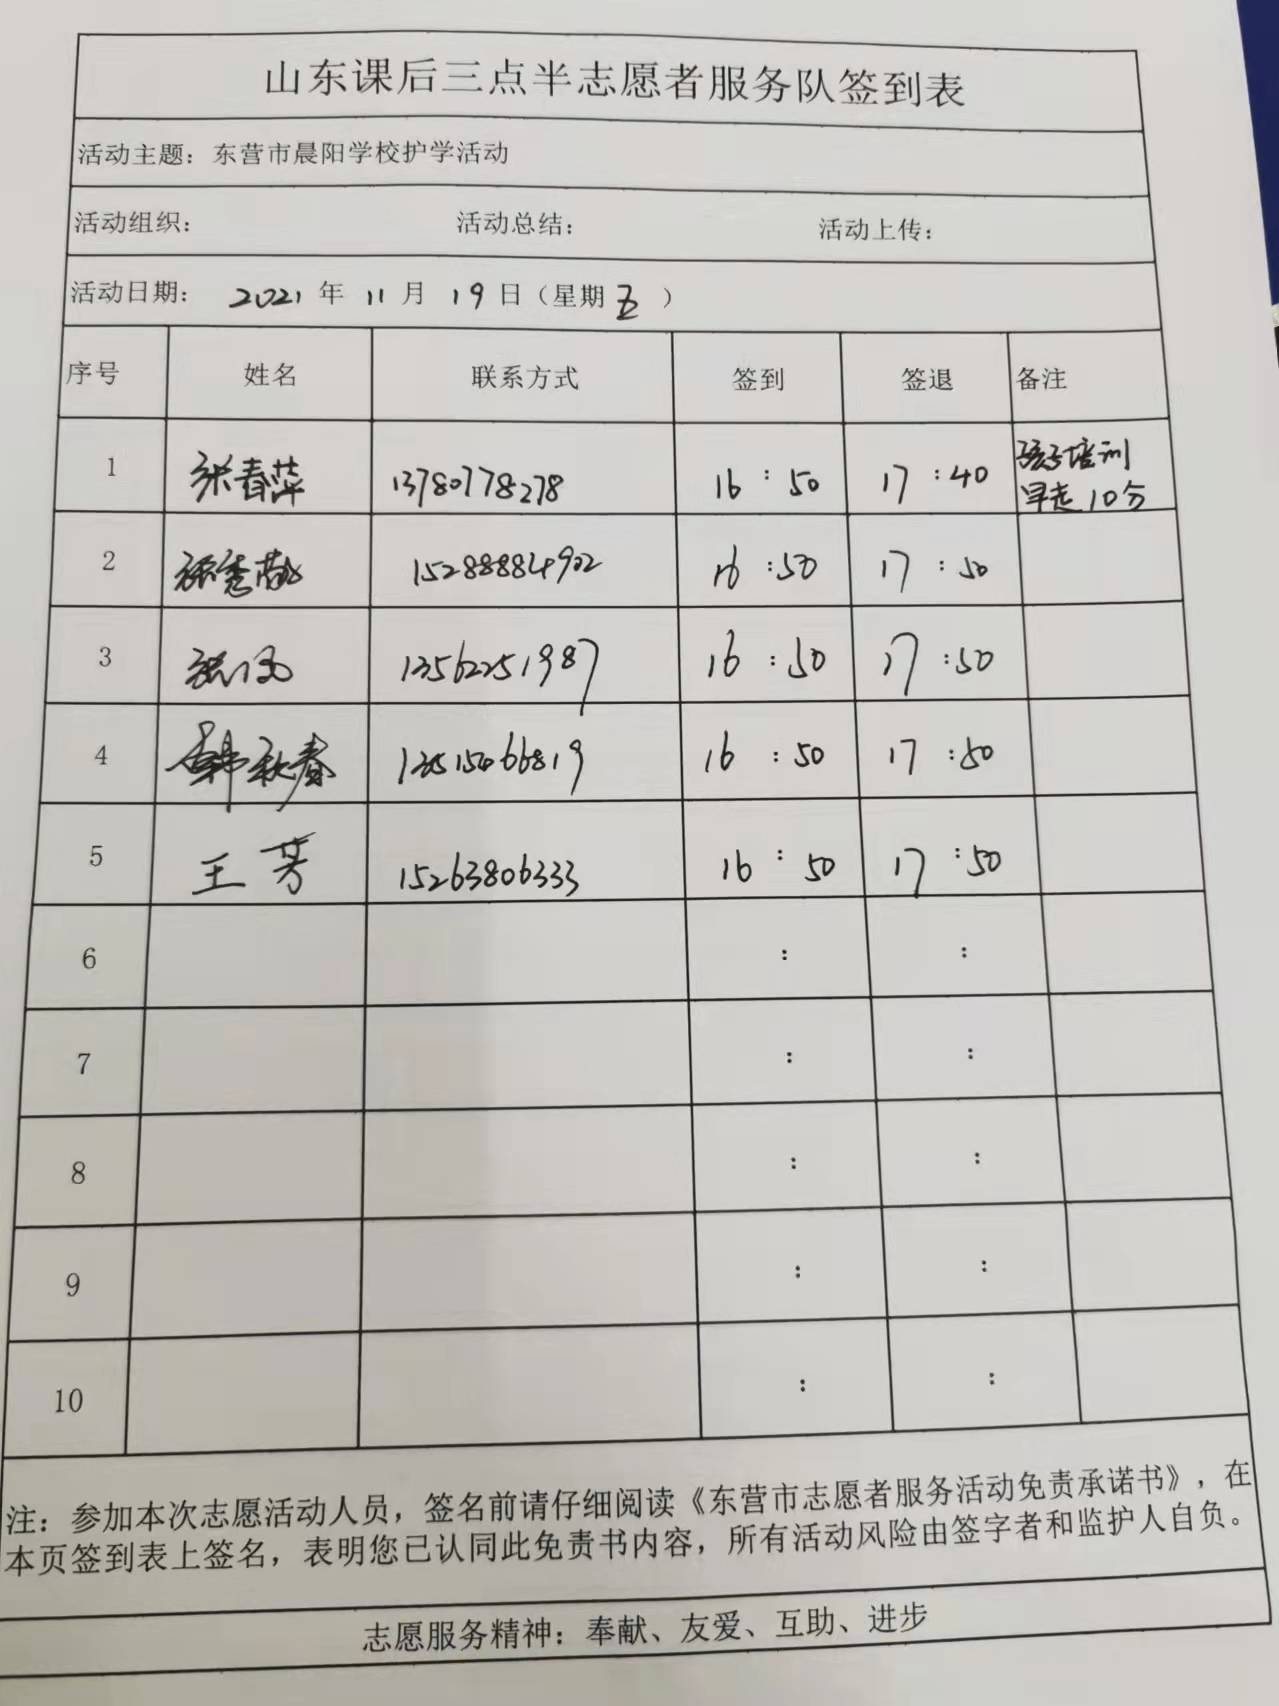 山东课后三点半志愿者服务队签到表
活动主题：东营市晨阳学校护学活动
活动组织： 活动总结： 活动上传：
活动日期： 2021 年 11 月 19 日（星期 五 ）
序号 姓名 联系方式 签到 签退 备注
1 张春萍 13780778278 16：50 17：40 孩子培训
早走10分
2 张秀 15288884902 16：50 17：50
3 张 13562251987 16：50 17：50
4 韩秋春 13515466819 16：50 17：50
5 王芳 15263806333 16：50 17：50
6 ： ：
7 ： ：
8 ： ：
9 ： ：
10 ： ：
注：参加本次志愿活动人员，签名前请仔细阅读《东营市志愿者服务活动免责承诺书》，在
本页签到表上签名，表明您已认同此免责书内容，所有活动风险由签字者和监护人自负。
志愿服务精神：奉献、友爱、互助、进步